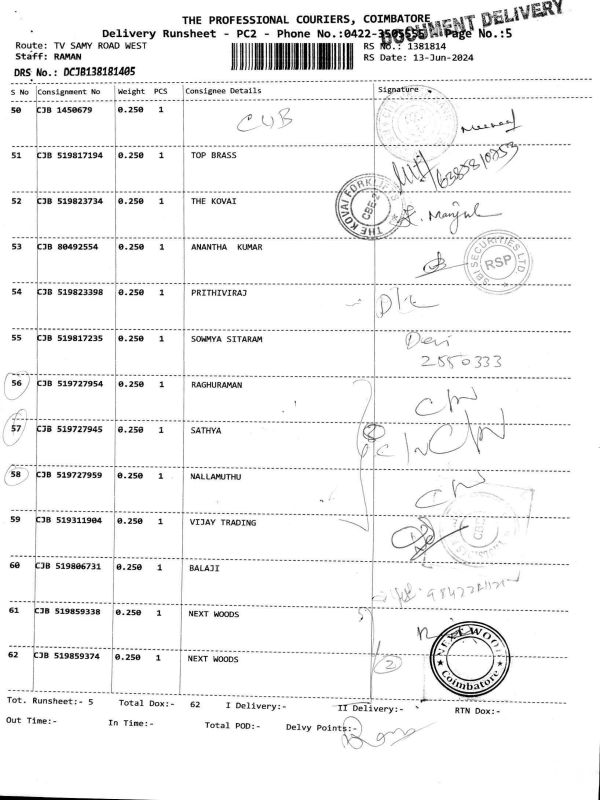 THE PROFESSIONAL COURIERS, COIMBATORE
DOCUMENT DELIVERY
Delivery Runsheet - PC2 - Phone No.:0422-3505555 Page No.:5
Route: TV SAMY ROAD WEST
RS No.: 1381814
Staff: RAMAN
RS Date: 13-Jun-2024
DRS No.: DCJB138181405
S No Consignment No Weight PCS Consignee Details Signature
50 CJB 1450679 0.250 1 CUB
51 CJB 519817194 0.250 1 TOP BRASS
52 CJB 519823734 0.250 1 THE KOVAI
THE KOVAI FORKLIFTS CBE-2
53 CJB 80492554 0.250 1 ANANTHA KUMAR
SBI SECURITIES LTD RSP
54 CJB 519823398 0.250 1 PRITHIVIRAJ
55 CJB 519817235 0.250 1 SOWMYA SITARAM Devi
2550333
56 CJB 519727954 0.250 1 RAGHURAMAN C/N
57 CJB 519727945 0.250 1 SATHYA C/N C/N
58 CJB 519727959 0.250 1 NALLAMUTHU C/N
59 CJB 519311904 0.250 1 VIJAY TRADING
60 CJB 519806731 0.250 1 BALAJI
61 CJB 519859338 0.250 1 NEXT WOODS
62 CJB 519859374 0.250 1 NEXT WOODS 2
NEXT WOOD Coimbatore
Tot. Runsheet:- 5 Total Dox:- 62 I Delivery:- II Delivery:- RTN Dox:-
Out Time:- In Time:- Total POD:- Delvy Points:-